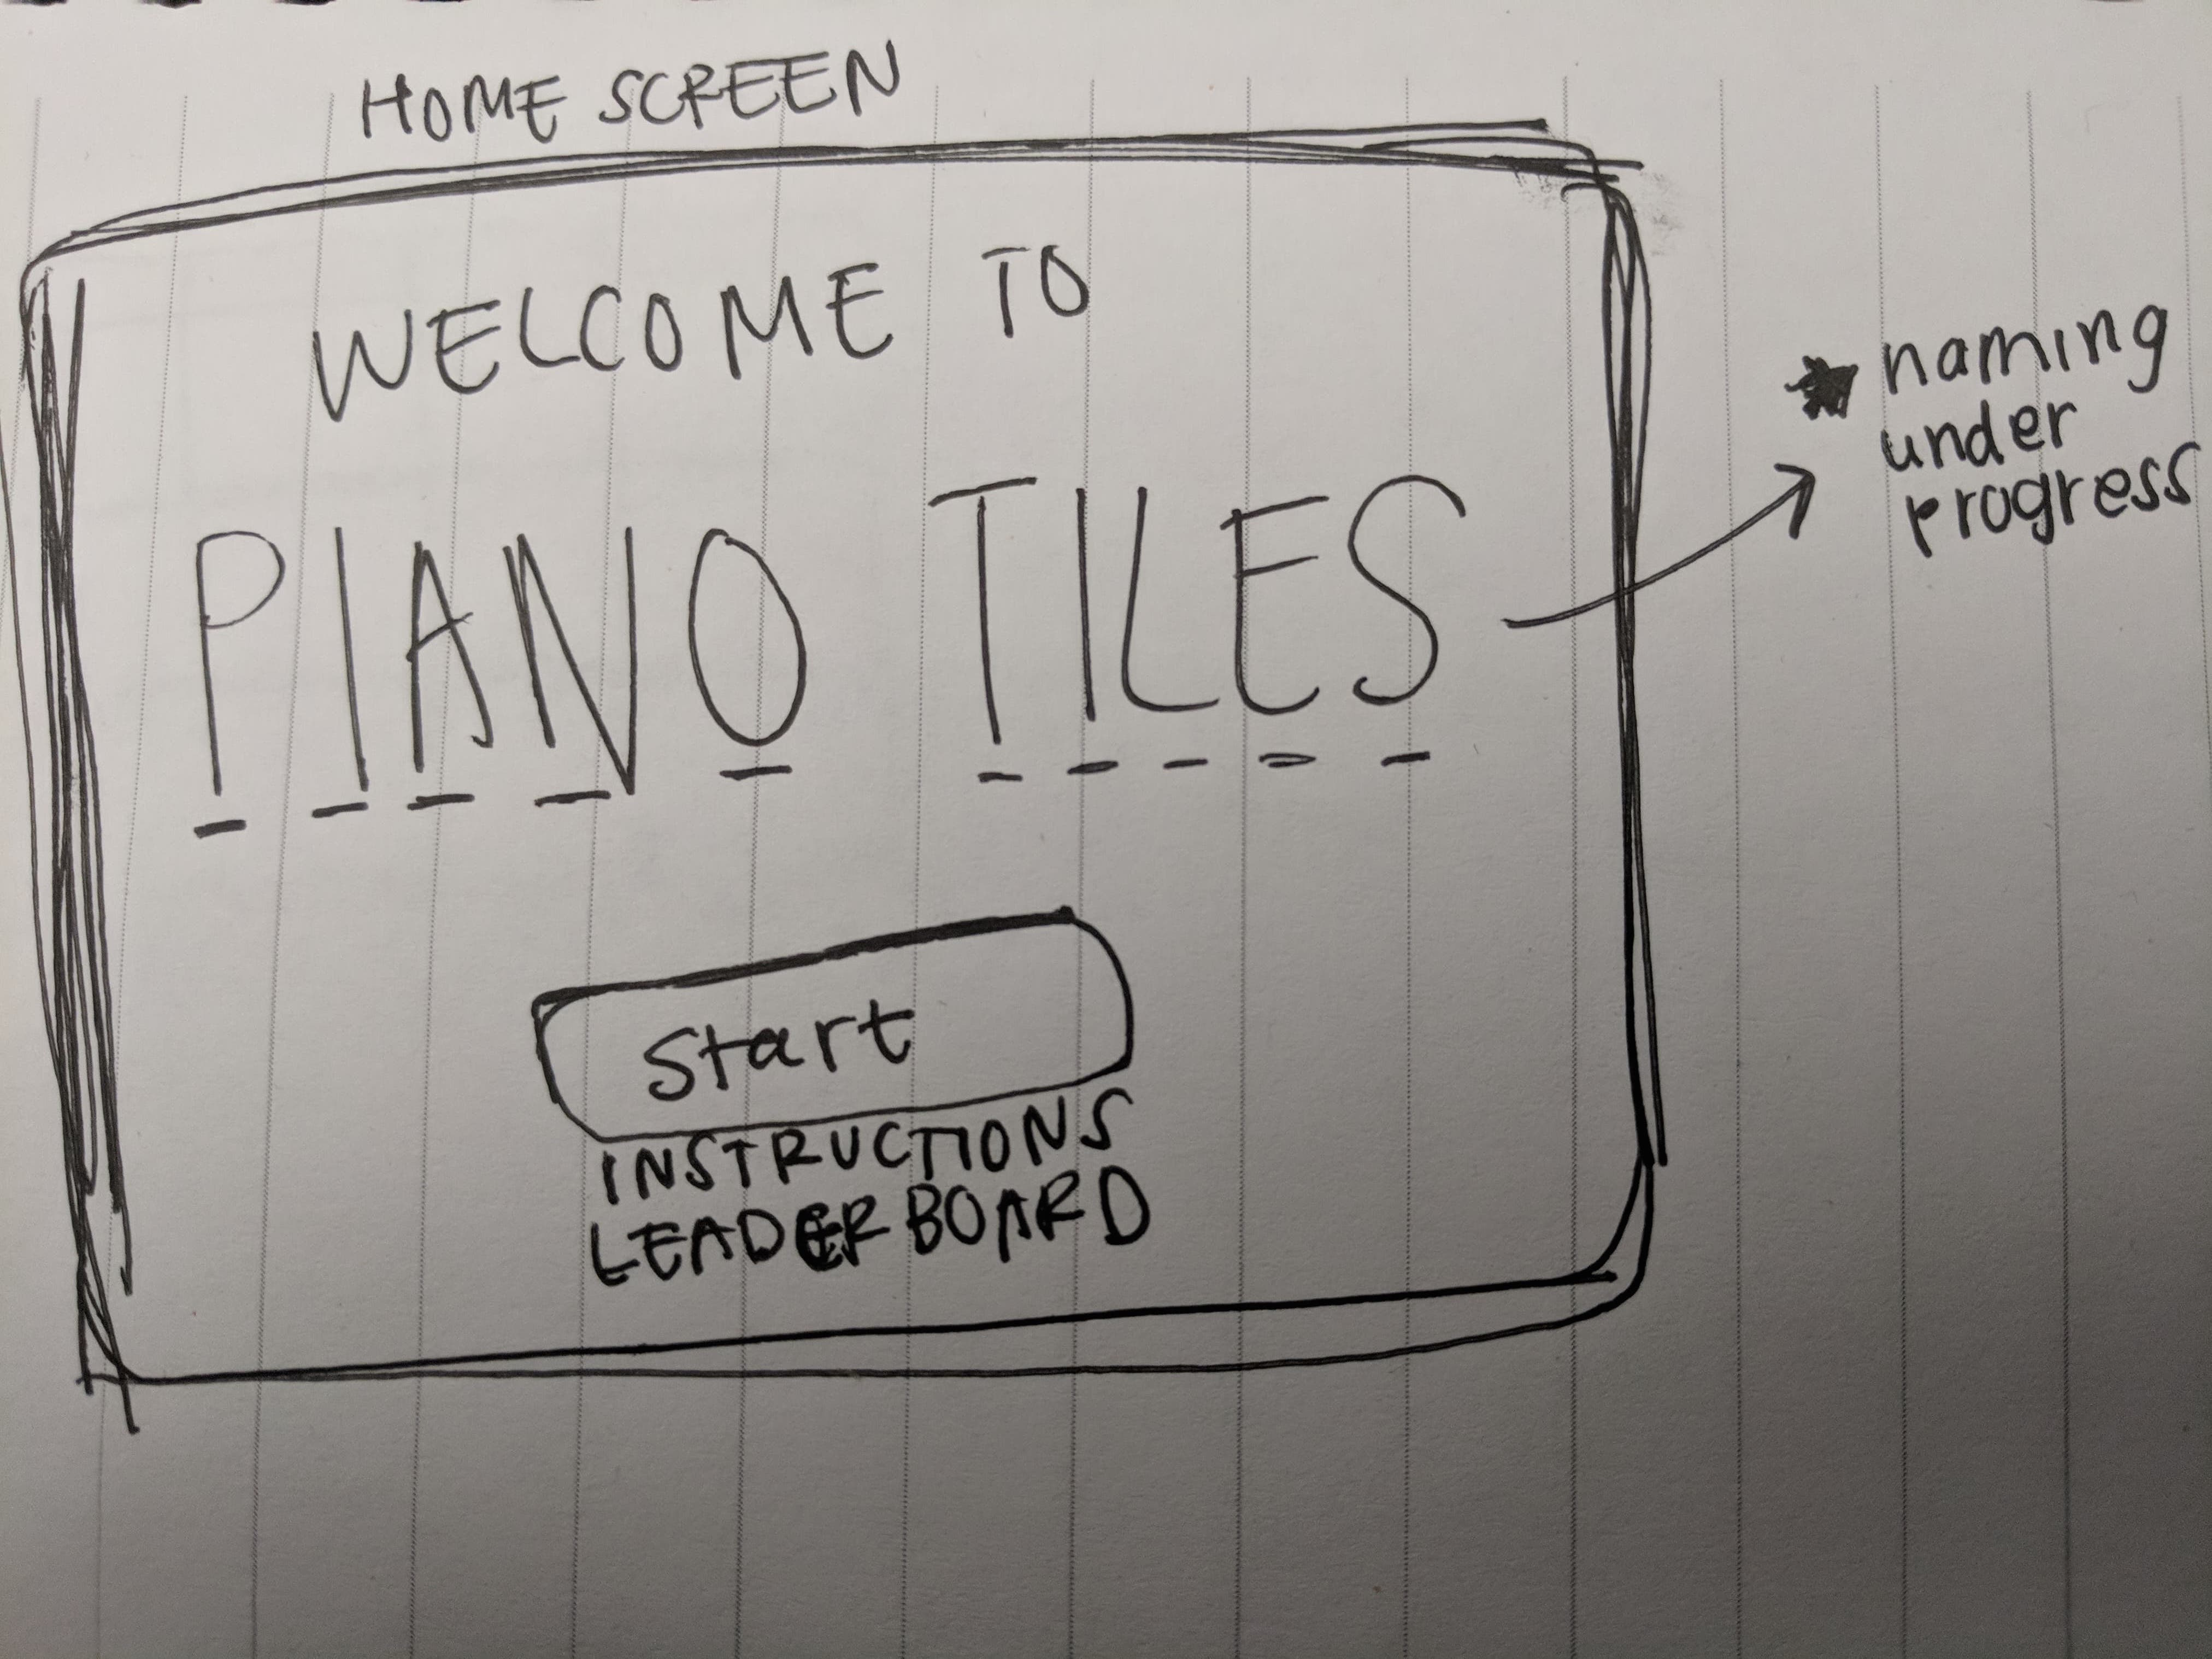 HOME SCREEN
WELCOME TO
PIANO TILES
★ naming
under
progress
Start
INSTRUCTIONS
LEADERBOARD